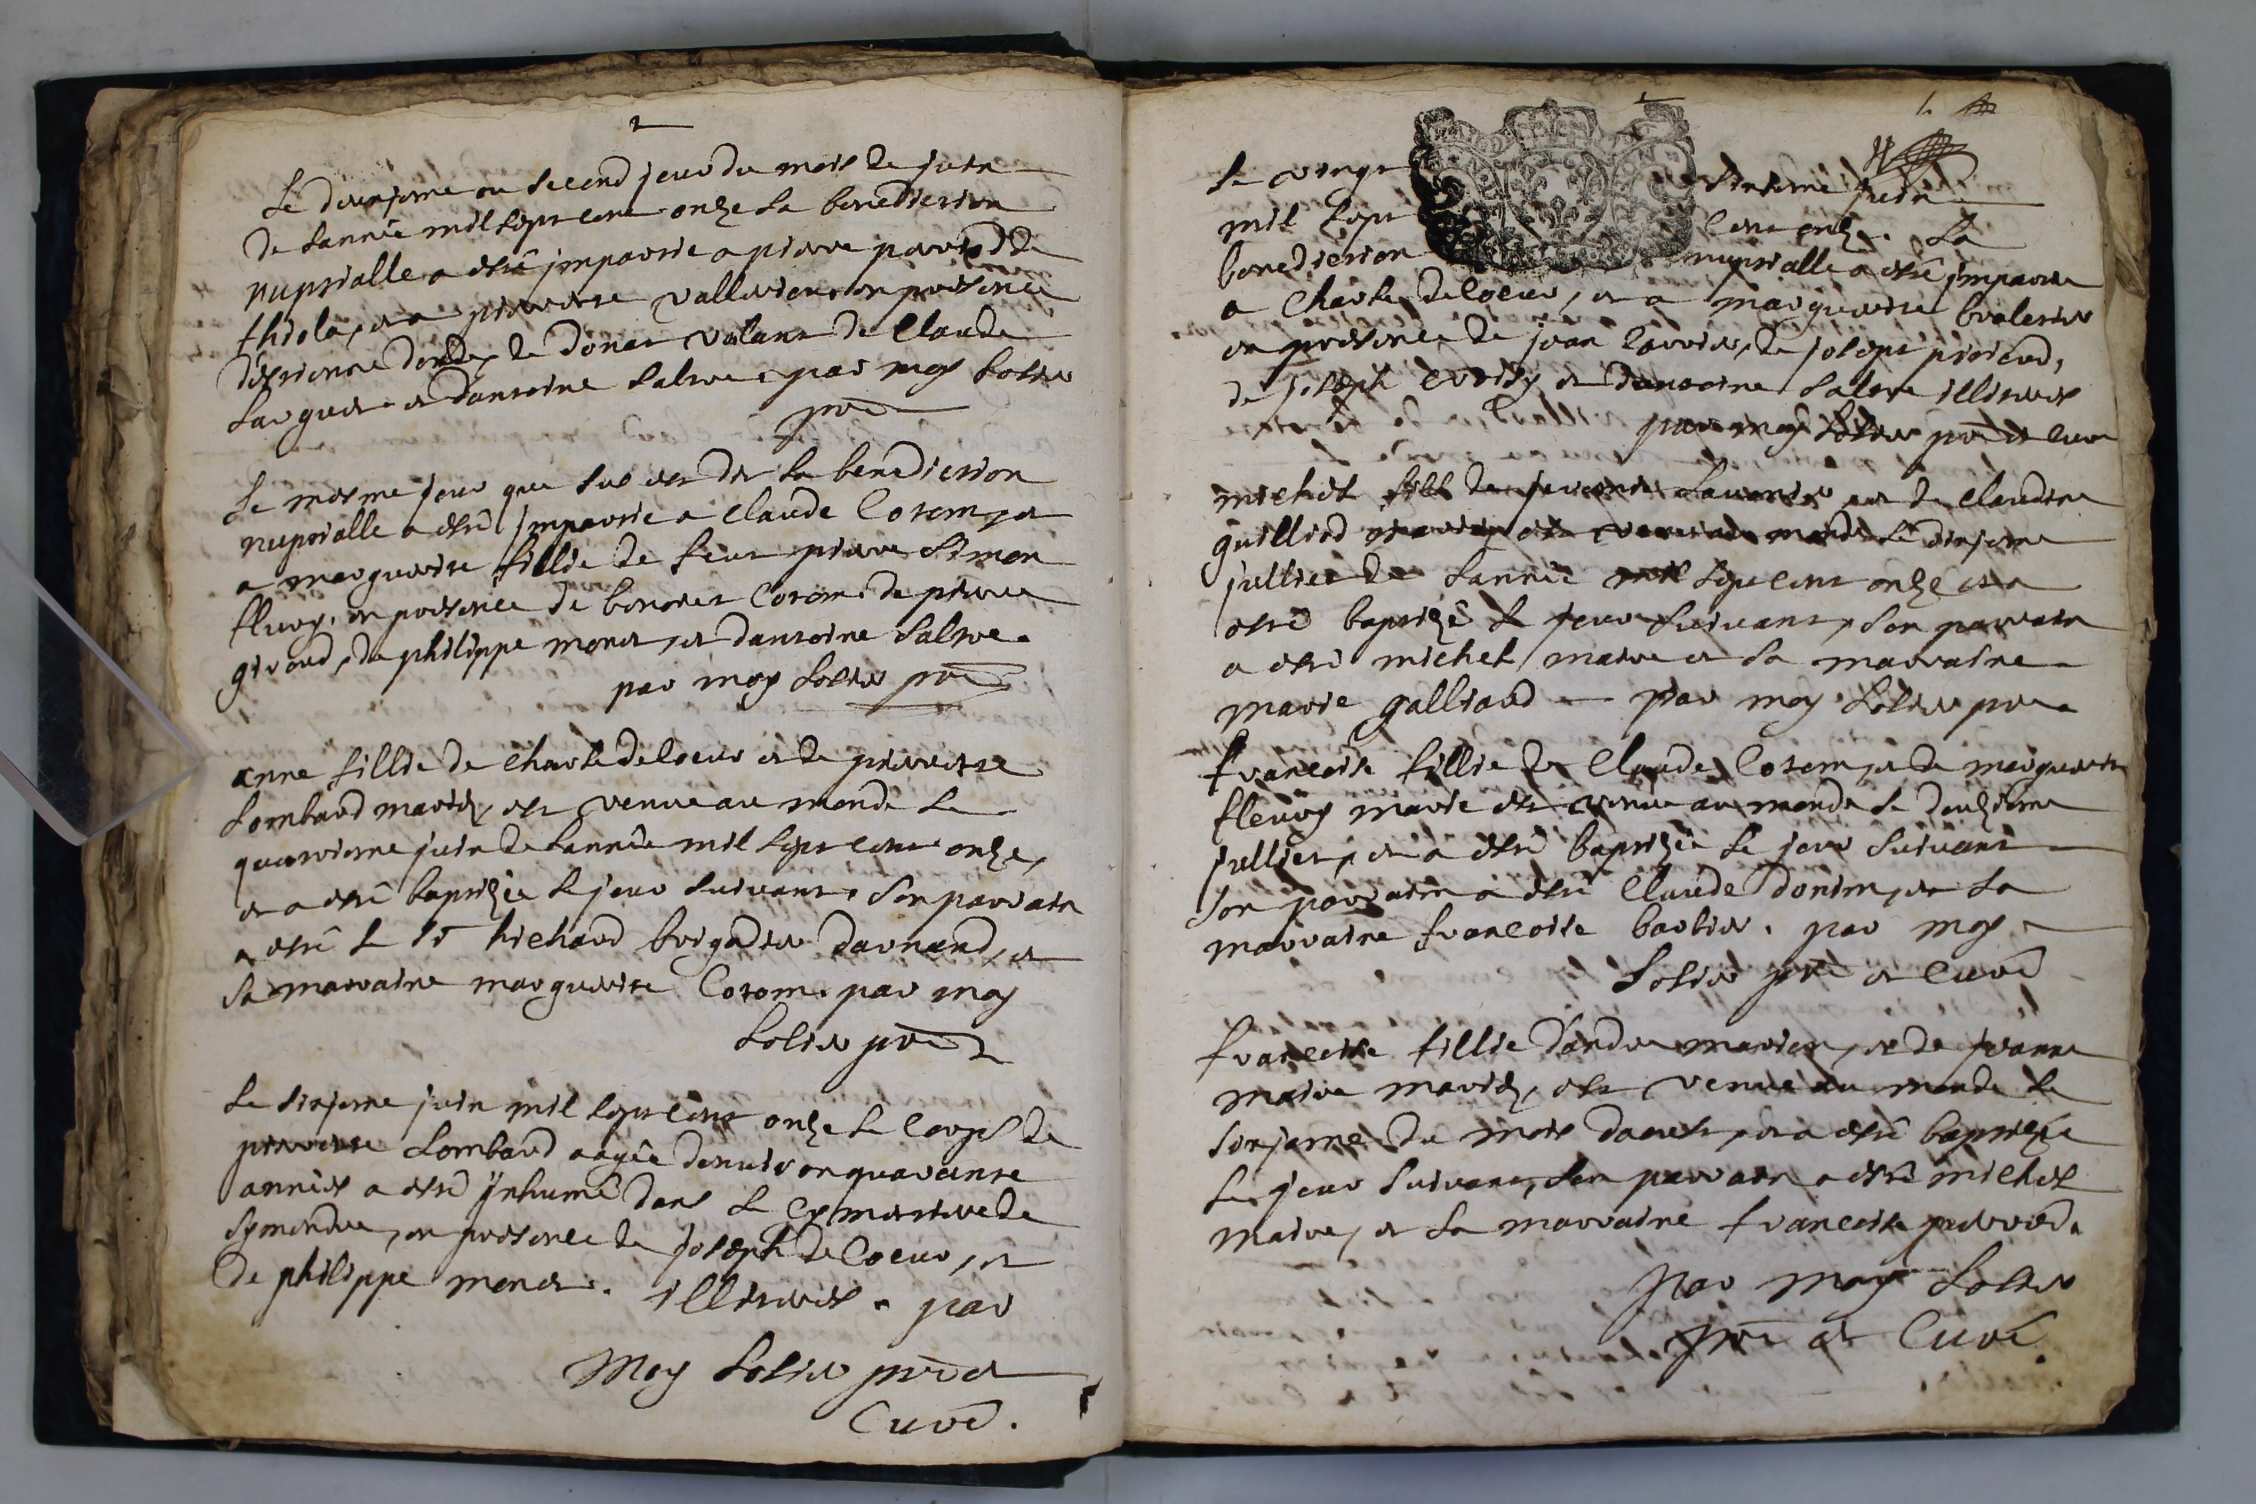 Le deuxjeme ou second jour du mois de juin
de lannée mil sept cent onze la benediction
nuptialle a esté jmpartie a pierre parrod de
thiola, et a pierrette en presence
destienne de donat de Claude
Larguet et dantoine par moy Solier
pre
Le mesme jour que sus est dit la benediction
nuptialle a esté jmpartie a claude Cotom, et
a marguerite fillie de feut pierre Simon
fleury, en presence de honoret Cotom de pierre
giroud, de philippe monet, et dantoine
par moy Solier pre
anne fillie de charle de Coeur et de pierrette
Lombard mariez, est venue au monde le
quatrieme juin de lannée mil sept cent onze,
et a esté baptizée le jour suivant, son parrain
a esté le sr brigadier et
sa marraine marguerite Cotom. par moy
Solier pre
Le sixjeme juin mil sept cent onze le corps de
pierrette Lombard aagée denviron quarante
années a esté jnhumé dans le cymmetiere de
Symendre, en presence de joseph de Coeur, et
de philippe monet. illiterés. par
Moy Solier pre et
Curé.
Le vingt sixieme juin
mil sept cent onze. La
benediction nuptialle a esté jmpartie
a Charle de Coeur, et a marguerite
en presence de jean de joseph
de joseph et dantoine illiterés
par moy Solier pre et curé
michel fill de et de claudine
est venu au monde le dixjeme
julliet de lannée mil sept cent onze et a
esté baptizé le jour suivant, son parrain
a esté michel maire et sa marraine
marie galliard par moy Solier pre
françoise fillie de Claude Cotom, et de marguerite
fleury mariés est venue au monde le douzieme
julliet, et a esté baptizée le jour suivant
son parrain a esté Claude donim, et sa
marraine françoise barbier. par moy
Solier pre et Curé
françoise fillie dandre marion, et de jeanne
maire mariez, est venue au monde le
sixjeme du mois daoust, et a esté baptizée
le jour suivant, son parrain a esté michel
maire, et sa marraine françoise perrod.
par moy Solier
pre et Curé.